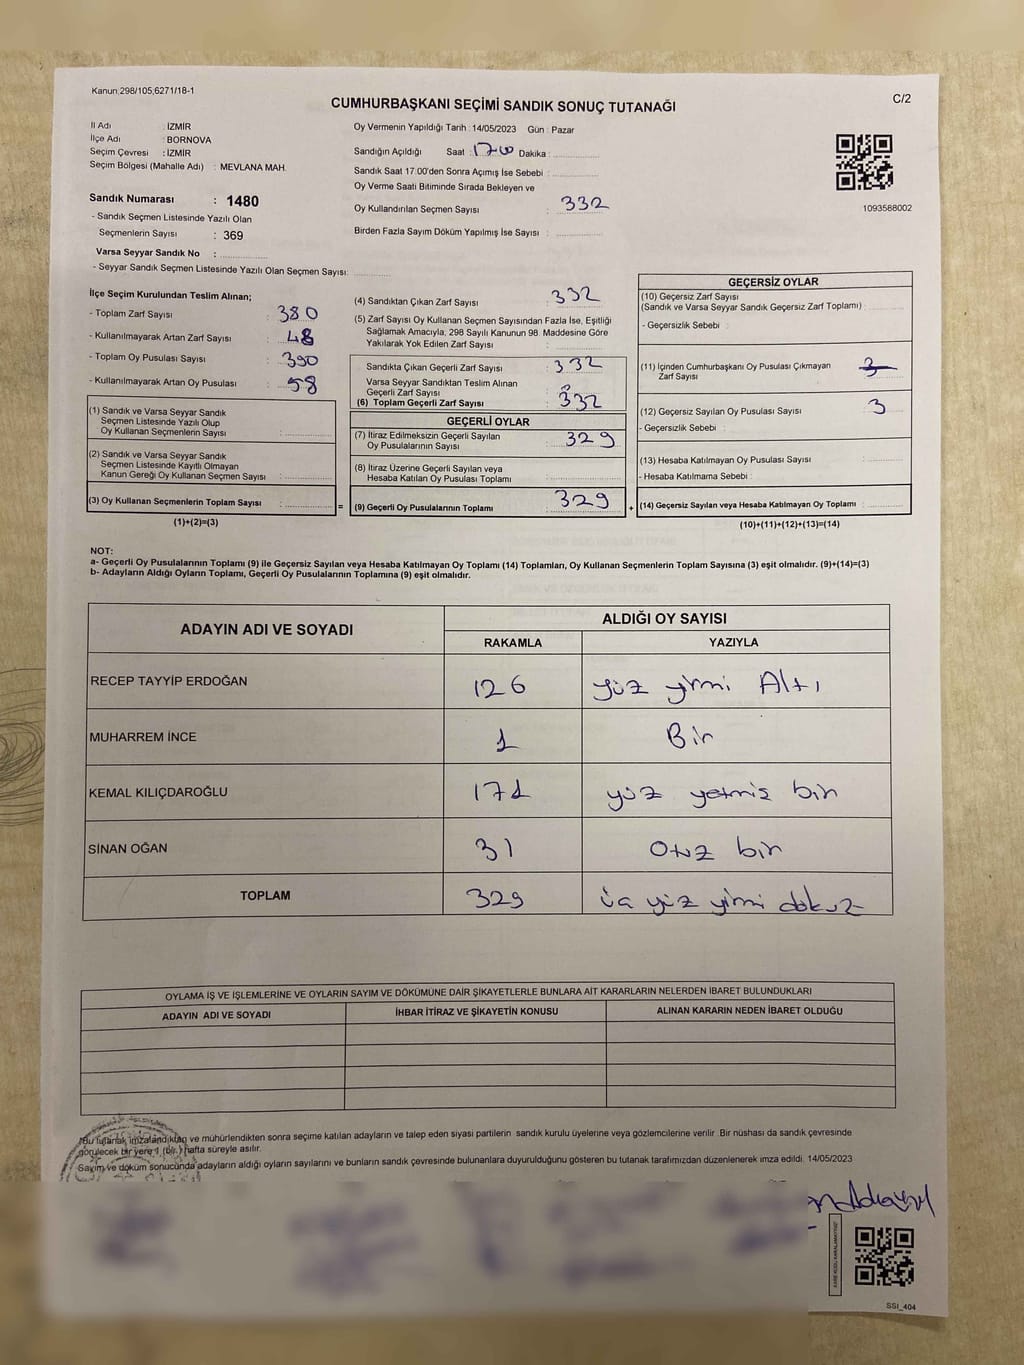 Kanun;298/105,6271/18-1
C/2
CUMHURBAŞKANI SEÇİMİ SANDIK SONUÇ TUTANAĞI
İl Adı : İZMİR
İlçe Adı : BORNOVA
Seçim Çevresi : İZMİR
Seçim Bölgesi (Mahalle Adı) : MEVLANA MAH.
Sandık Numarası : 1480
- Sandık Seçmen Listesinde Yazılı Olan
Seçmenlerin Sayısı : 369
Varsa Seyyar Sandık No :
- Seyyar Sandık Seçmen Listesinde Yazılı Olan Seçmen Sayısı:
Oy Vermenin Yapıldığı Tarih : 14/05/2023 Gün : Pazar
Sandığın Açıldığı Saat : 17.00 Dakika :
Sandık Saat 17:00'den Sonra Açımış İse Sebebi :
Oy Verme Saati Bitiminde Sırada Bekleyen ve
Oy Kullandırılan Seçmen Sayısı : 332
Birden Fazla Sayım Döküm Yapılmış İse Sayısı :
1093588002
İlçe Seçim Kurulundan Teslim Alınan;
- Toplam Zarf Sayısı : 380
- Kullanılmayarak Artan Zarf Sayısı : 48
- Toplam Oy Pusulası Sayısı : 390
- Kullanılmayarak Artan Oy Pusulası : 58
(1) Sandık ve Varsa Seyyar Sandık
Seçmen Listesinde Yazılı Olup
Oy Kullanan Seçmenlerin Sayısı :
(2) Sandık ve Varsa Seyyar Sandık
Seçmen Listesinde Kayıtlı Olmayan
Kanun Gereği Oy Kullanan Seçmen Sayısı :
(3) Oy Kullanan Seçmenlerin Toplam Sayısı :
=
(1)+(2)=(3)
(4) Sandıktan Çıkan Zarf Sayısı : 332
(5) Zarf Sayısı Oy Kullanan Seçmen Sayısından Fazla İse, Eşitliği
Sağlamak Amacıyla, 298 Sayılı Kanunun 98. Maddesine Göre
Yakılarak Yok Edilen Zarf Sayısı :
Sandıkta Çıkan Geçerli Zarf Sayısı : 332
Varsa Seyyar Sandıktan Teslim Alınan
Geçerli Zarf Sayısı :
(6) Toplam Geçerli Zarf Sayısı : 332
GEÇERLİ OYLAR
(7) İtiraz Edilmeksizin Geçerli Sayılan
Oy Pusulalarının Sayısı : 329
(8) İtiraz Üzerine Geçerli Sayılan veya
Hesaba Katılan Oy Pusulası Toplamı :
(9) Geçerli Oy Pusulalarının Toplamı : 329
+
GEÇERSİZ OYLAR
(10) Geçersiz Zarf Sayısı
(Sandık ve Varsa Seyyar Sandık Geçersiz Zarf Toplamı) :
- Geçersizlik Sebebi :
(11) İçinden Cumhurbaşkanı Oy Pusulası Çıkmayan
Zarf Sayısı : 3
(12) Geçersiz Sayılan Oy Pusulası Sayısı : 3
- Geçersizlik Sebebi :
(13) Hesaba Katılmayan Oy Pusulası Sayısı :
- Hesaba Katılmama Sebebi :
(14) Geçersiz Sayılan veya Hesaba Katılmayan Oy Toplamı :
(10)+(11)+(12)+(13)=(14)
NOT:
a- Geçerli Oy Pusulalarının Toplamı (9) ile Geçersiz Sayılan veya Hesaba Katılmayan Oy Toplamı (14) Toplamları, Oy Kullanan Seçmenlerin Toplam Sayısına (3) eşit olmalıdır. (9)+(14)=(3)
b- Adayların Aldığı Oyların Toplamı, Geçerli Oy Pusulalarının Toplamına (9) eşit olmalıdır.
ADAYIN ADI VE SOYADI
ALDIĞI OY SAYISI
RAKAMLA YAZIYLA
RECEP TAYYİP ERDOĞAN 126 yüz yirmi Altı
MUHARREM İNCE 1 Bir
KEMAL KILIÇDAROĞLU 171 yüz yetmiş bir
SİNAN OĞAN 31 Otuz bir
TOPLAM 329 üç yüz yirmi dokuz
OYLAMA İŞ VE İŞLEMLERİNE VE OYLARIN SAYIM VE DÖKÜMÜNE DAİR ŞİKAYETLERLE BUNLARA AİT KARARLARIN NELERDEN İBARET BULUNDUKLARI
ADAYIN ADI VE SOYADI İHBAR İTİRAZ VE ŞİKAYETİN KONUSU ALINAN KARARIN NEDEN İBARET OLDUĞU
*Bu tutanak imzalandıktan ve mühürlendikten sonra seçime katılan adayların ve talep eden siyasi partilerin sandık kurulu üyelerine veya gözlemcilerine verilir. Bir nüshası da sandık çevresinde
görülecek bir yere 1 (bir) hafta süreyle asılır.
Sayım ve döküm sonucunda adayların aldığı oyların sayılarını ve bunların sandık çevresinde bulunanlara duyurulduğunu gösteren bu tutanak tarafımızdan düzenlenerek imza edildi. 14/05/2023
SSI_404